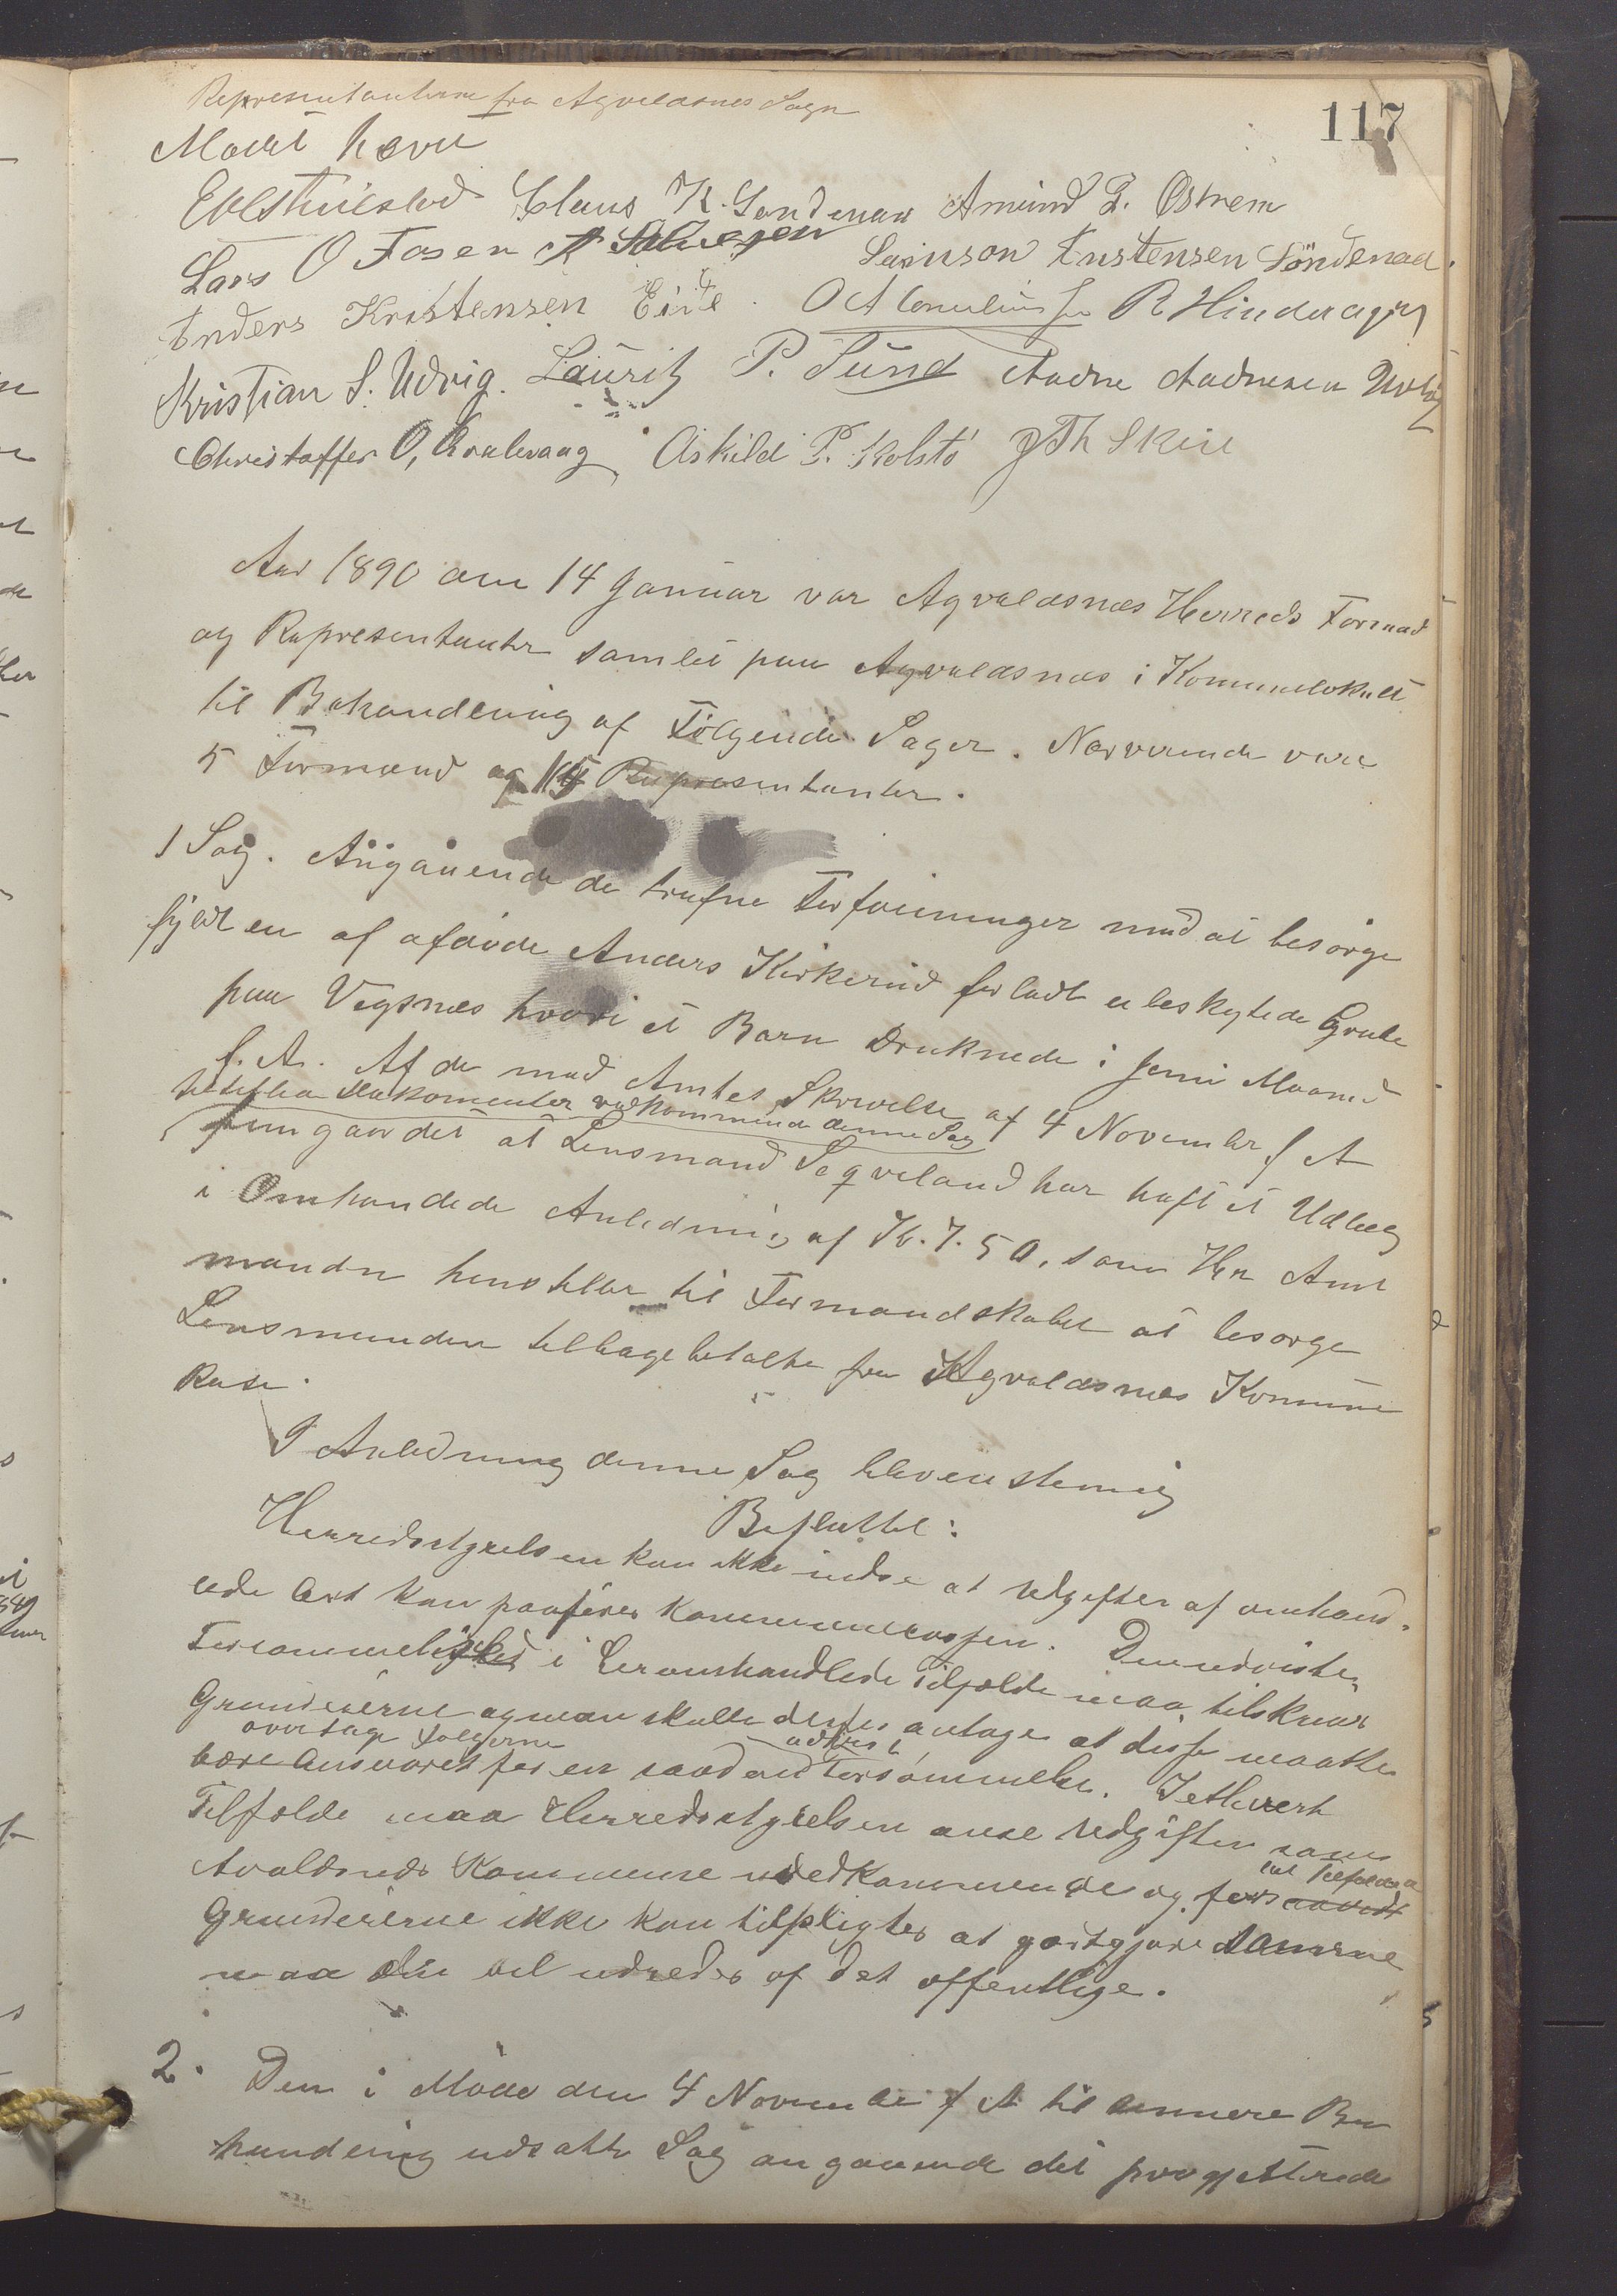 Representanterne fra Agvaldsnes Sogn
117
Mödt hever
Claus K. Sandenaa Amund L. Østrem
Lars O Fosen A Salvesen Samson Knstensen Söndenaa.
Anders Kristensen Eide. O A R Hinderager
Kristian S. Udvig. Lauritz P. Sund Aadne Aadnesen
Christoffer O, Kvalevaag Askild P. Kolstö Th Skeie
Aar 1890 den 14 Januar var Agvaldsnæs Herreds Formæd
og Representanter samlet paa Agvaldsnæs i Komunelokalet
til Behandling af Følgende Sager. Nærverende vare
5 Formænd og 15 Representanter.
1 Sag. Angåuende de trufne Forføininger med at besörge
fyldt en af afdöde Anders Kirkerud forladt ubeskytede Grube
paa Vigsnæs hvori et Barn Druknede i Juni Maaned
f. A. Af de med Amtes Skrivelse af 4 November f A
tilstillea Dokomenter vedkommende denne Sag
fremgaar det at Lensmand Seqveland har haft et Udleg
i Omhandlede Anledning af Kr. 7.50, som Her Amt
manden henstiller til Formandskabet at besorge
Lensmanden tilbagebetalte fra Agvaldsnes Komune
Kase.
I Anledning denne Sag blev enstemig
Besluttet:
Herredsstyrelsen kan ikke indse at Udgiften af omhand-
lede Art kan paaføres Kommunecassen. Den udviste
Forsømmelighed i heromhandlede Tilfælde maa tilskrives
Grundeierne og man skulle derfor antage at disse maatte
overtage Følgerne udvist
bære Ansvaret for en saadan Forsømmelse. Iethvert
Tilfælde maa Herredsstyrelsen anse Udgiften som
Avaldsnæs Kommune uvedkommende og for det Tilfælde at
Grundeierne ikke kan tilpligtes at godtgjøre samme
maa den vel udredes af det offentlige.
2. Den i Möde den 4 November f A til nermere Be
handling udsatte Sag angaaende det progjetterede